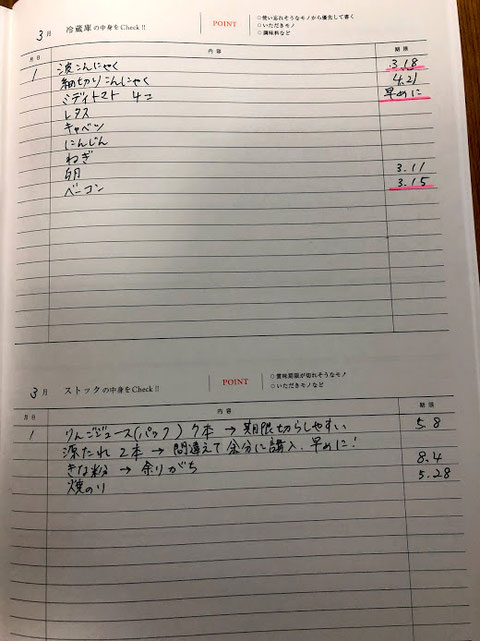 3月 冷蔵庫の中身をCheck!! POINT
○使い忘れそうなモノから優先して書く
○いただきモノ
○調味料など
月日 内容 期限
1 凍こんにゃく 3.18
細切りこんにゃく 4.21
ミディトマト 4コ 早めに
レタス
キャベツ
にんじん
ねぎ
卵 3.11
ベーコン 3.15
3月 ストックの中身をCheck!! POINT
○賞味期限が切れそうなモノ
○いただきモノなど
月日 内容 期限
1 りんごジュース(パック) 7本 → 期限切らしやすい 5.8
源たれ 2本 → 間違えて余分に購入。早めに!
きな粉 → 余りがち 8.4
焼のり 5.28